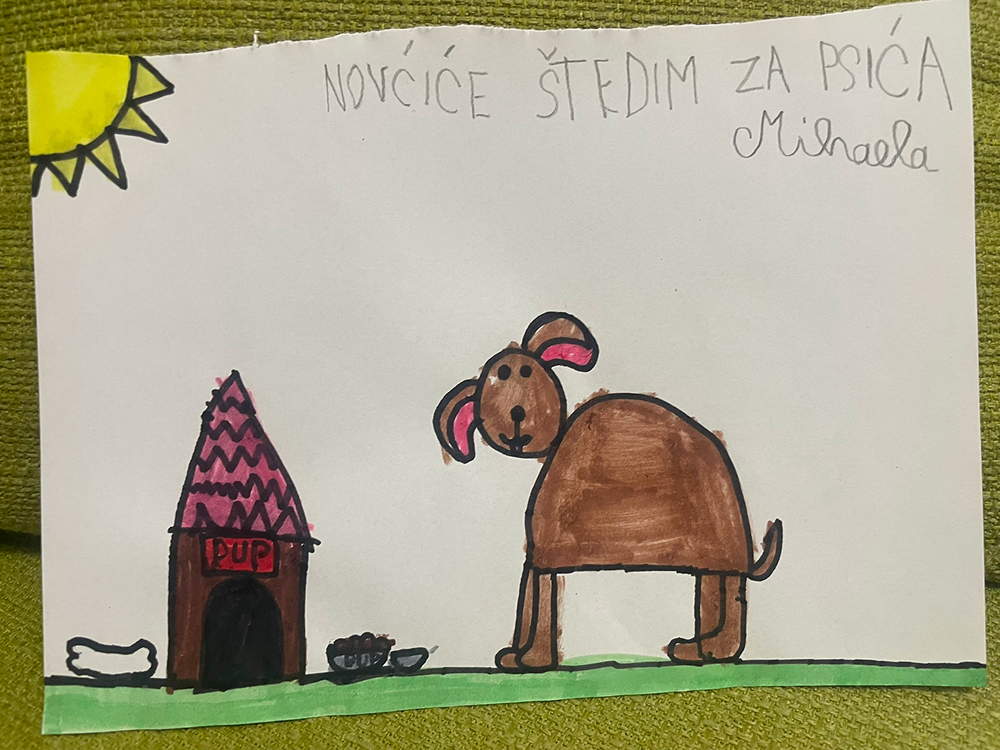 NOVČIĆE ŠTEDIM ZA PSIĆA
Mihaela
PUP